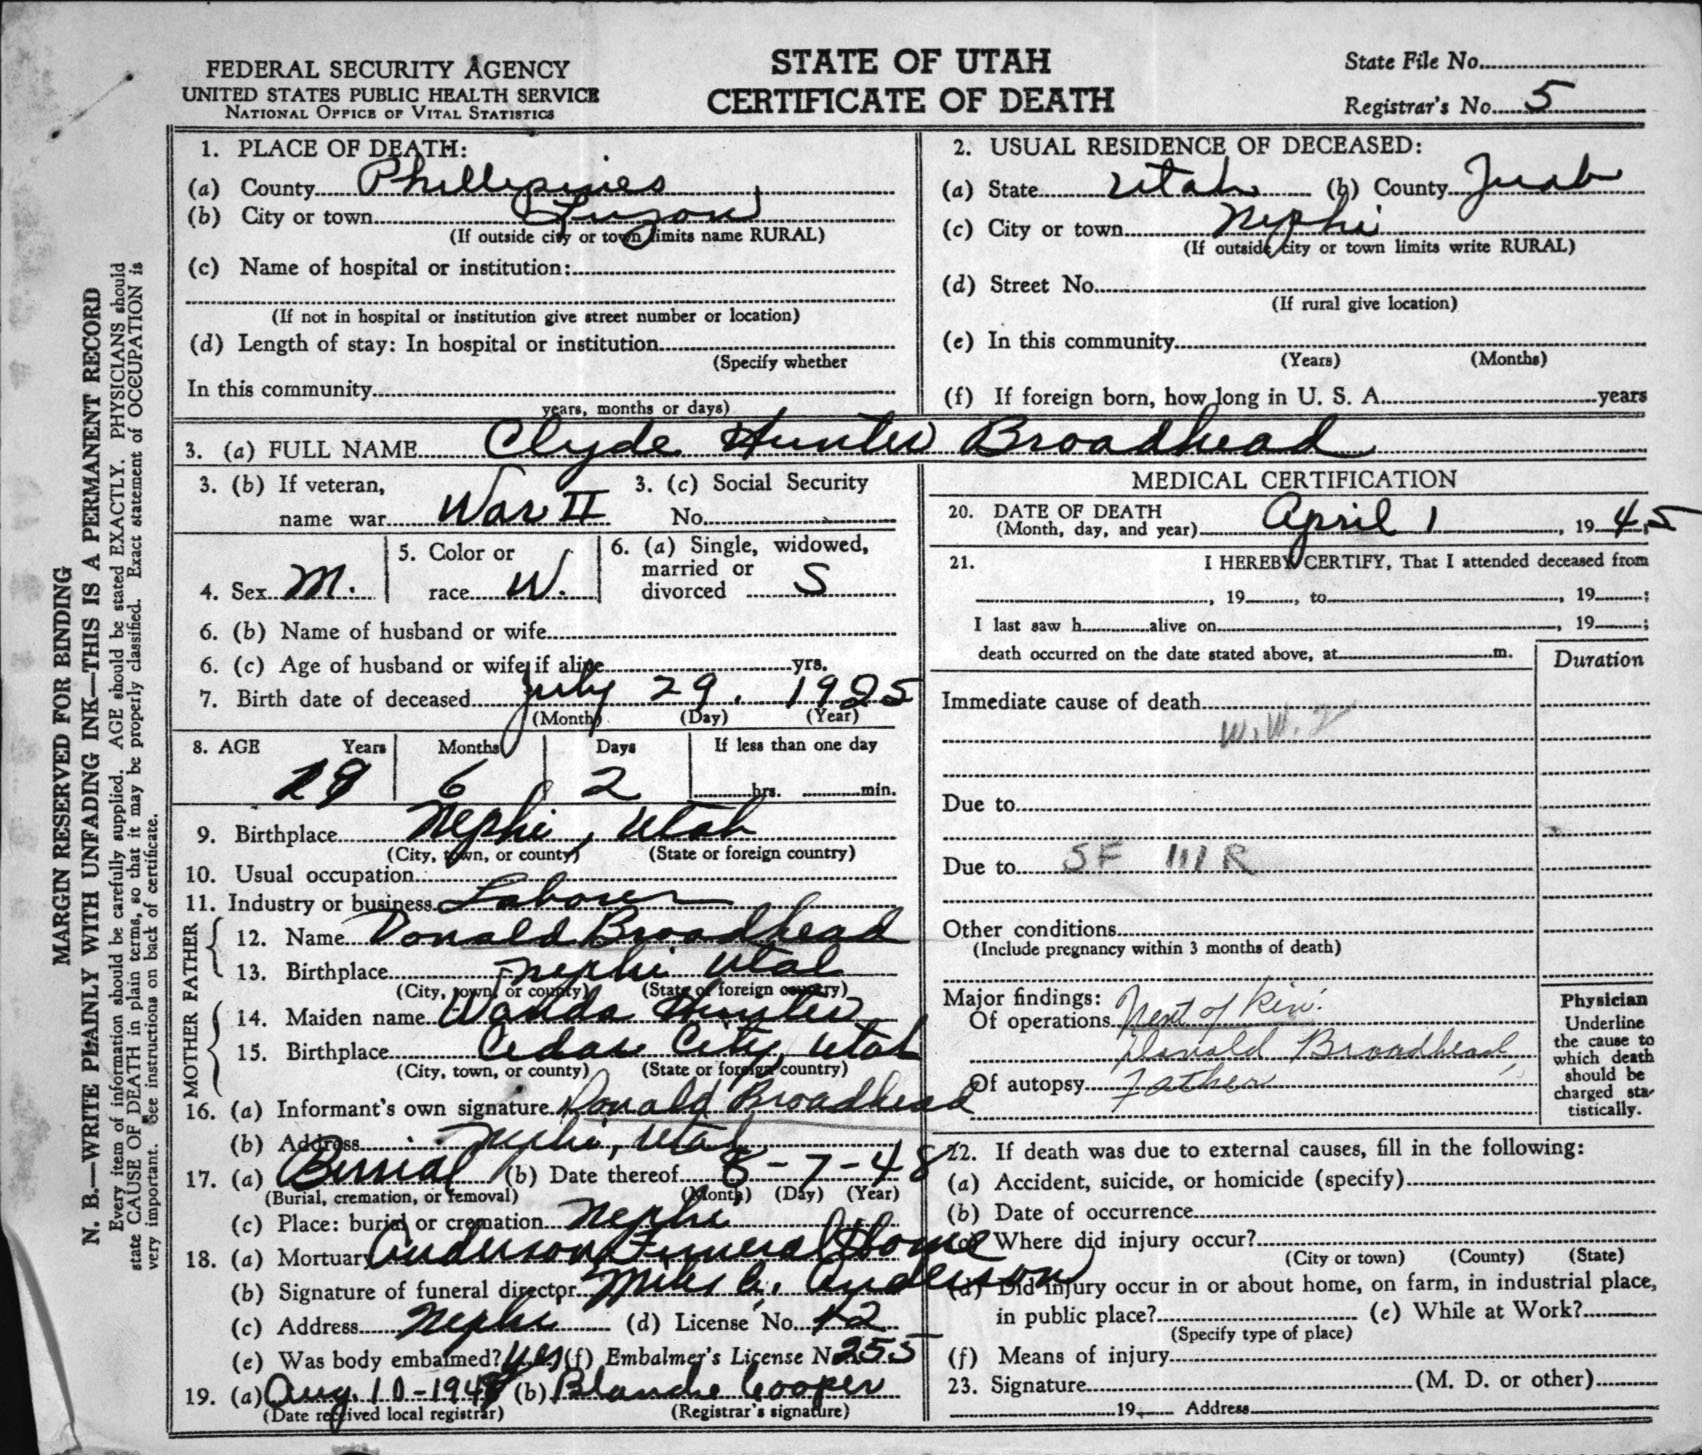 FEDERAL SECURITY AGENCY
UNITED STATES PUBLIC HEALTH SERVICE
NATIONAL OFFICE OF VITAL STATISTICS
STATE OF UTAH
CERTIFICATE OF DEATH
State File No.
Registrar's No. 5
MARGIN RESERVED FOR BINDING
N. B.—WRITE PLAINLY WITH UNFADING INK—THIS IS A PERMANENT RECORD
Every item of information should be carefully supplied. AGE should be stated EXACTLY. PHYSICIANS should
state CAUSE OF DEATH in plain terms, so that it may be properly classified. Exact statement of OCCUPATION is
very important. See instructions on back of certificate.
1. PLACE OF DEATH:
(a) County Phillipines
(b) City or town Luzon
(If outside city or town limits name RURAL)
(c) Name of hospital or institution:
(If not in hospital or institution give street number or location)
(d) Length of stay: In hospital or institution
(Specify whether
In this community
years, months or days)
2. USUAL RESIDENCE OF DECEASED:
(a) State Utah (b) County Juab
(c) City or town Nephi
(If outside city or town limits write RURAL)
(d) Street No.
(If rural give location)
(e) In this community
(Years) (Months)
(f) If foreign born, how long in U. S. A. years
3. (a) FULL NAME Clyde Hunter Broadhead
3. (b) If veteran, name war War II
3. (c) Social Security No.
4. Sex M.
5. Color or race W.
6. (a) Single, widowed, married or divorced S
6. (b) Name of husband or wife
6. (c) Age of husband or wife if alive yrs.
7. Birth date of deceased July 29, 1925
(Month) (Day) (Year)
8. AGE Years Months Days If less than one day
19 6 2 hrs. min.
9. Birthplace Nephi, Utah
(City, town, or county) (State or foreign country)
10. Usual occupation
11. Industry or business Laborer
FATHER
12. Name Donald Broadhead
13. Birthplace Nephi Utah
(City, town, or county) (State or foreign country)
MOTHER
14. Maiden name Wanda Hunter
15. Birthplace Cedar City, Utah
(City, town, or county) (State or foreign country)
16. (a) Informant's own signature Donald Broadhead
(b) Address Nephi, Utah
17. (a) Burrial (b) Date thereof 8-7-48
(Burial, cremation, or removal) (Month) (Day) (Year)
(c) Place: burial or cremation Nephi
18. (a) Mortuary Anderson Funeral Home
(b) Signature of funeral director Miles G. Anderson
(c) Address Nephi (d) License No. 12
(e) Was body embalmed? yes (f) Embalmer's License No. 255
19. (a) Aug. 10-1948 (b) Blanche Cooper
(Date received local registrar) (Registrar's signature)
MEDICAL CERTIFICATION
20. DATE OF DEATH
(Month, day, and year) April 1, 1945
21. I HEREBY CERTIFY, That I attended deceased from
, 19 , to , 19 ;
I last saw h alive on , 19 ;
death occurred on the date stated above, at m.
Duration
Immediate cause of death
W.W.2
Due to
Due to SF 111 R
Other conditions
(Include pregnancy within 3 months of death)
Major findings:
Of operations Next of Kin:
Donald Broadhead,
Of autopsy Father
Physician
Underline
the cause to
which death
should be
charged sta-
tistically.
22. If death was due to external causes, fill in the following:
(a) Accident, suicide, or homicide (specify)
(b) Date of occurrence
(c) Where did injury occur?
(City or town) (County) (State)
(d) Did injury occur in or about home, on farm, in industrial place,
in public place? (e) While at Work?
(Specify type of place)
(f) Means of injury
23. Signature (M. D. or other)
19 Address